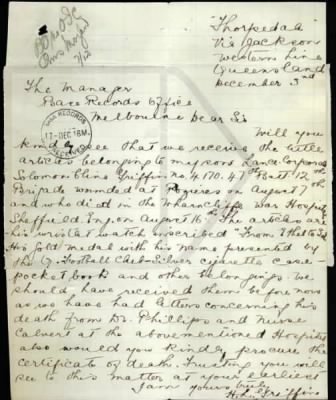 "Thorpedale"
Via Jackson
Western Line
Queensland
December 3rd
The Manager
Base Records Office
Melbourne Dear Sir
Will you
kindly see that we receive the little
articles belonging to my son Lance Corporal
Solomon Cline Griffin no. 4170. 47th Batt 12th
Brigade wounded at Pozieres on August 7th
and who died in the Wharncliffe War Hospital
Sheffield. Eng. on August 16th The articles are
his wristlet watch inscribed "From to Sol
His Gold Medal with his name presented by
the Football Club Silver cigarette case
pocket book and other belongings we
should have received them before now
as we have had letters concerning his
death from Dr. Phillips and Nurse
Calvert at the abovementioned Hospital
also would you kindly procure the
certificate of death, Trusting you will
see to this matter at your earliest
I am yours truly
Griffin
RECORDS
17 DEC